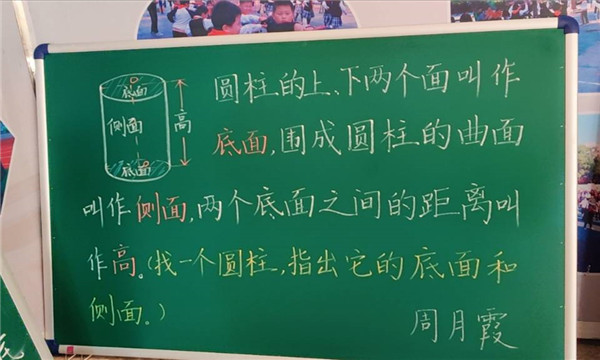 底面
侧面
高
底面
圆柱的上、下两个面叫作
底面,围成圆柱的曲面
叫作侧面,两个底面之间的距离叫
作高。(找一个圆柱,指出它的底面和
侧面。)
周月霞